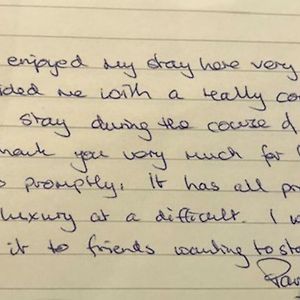 enjoyed my stay here very
ided me with a really co
stay during the course d
hank you very much for
s promptly, it has all pr
luxury at a difficult. I w
it to friends wanting to sta
Pau